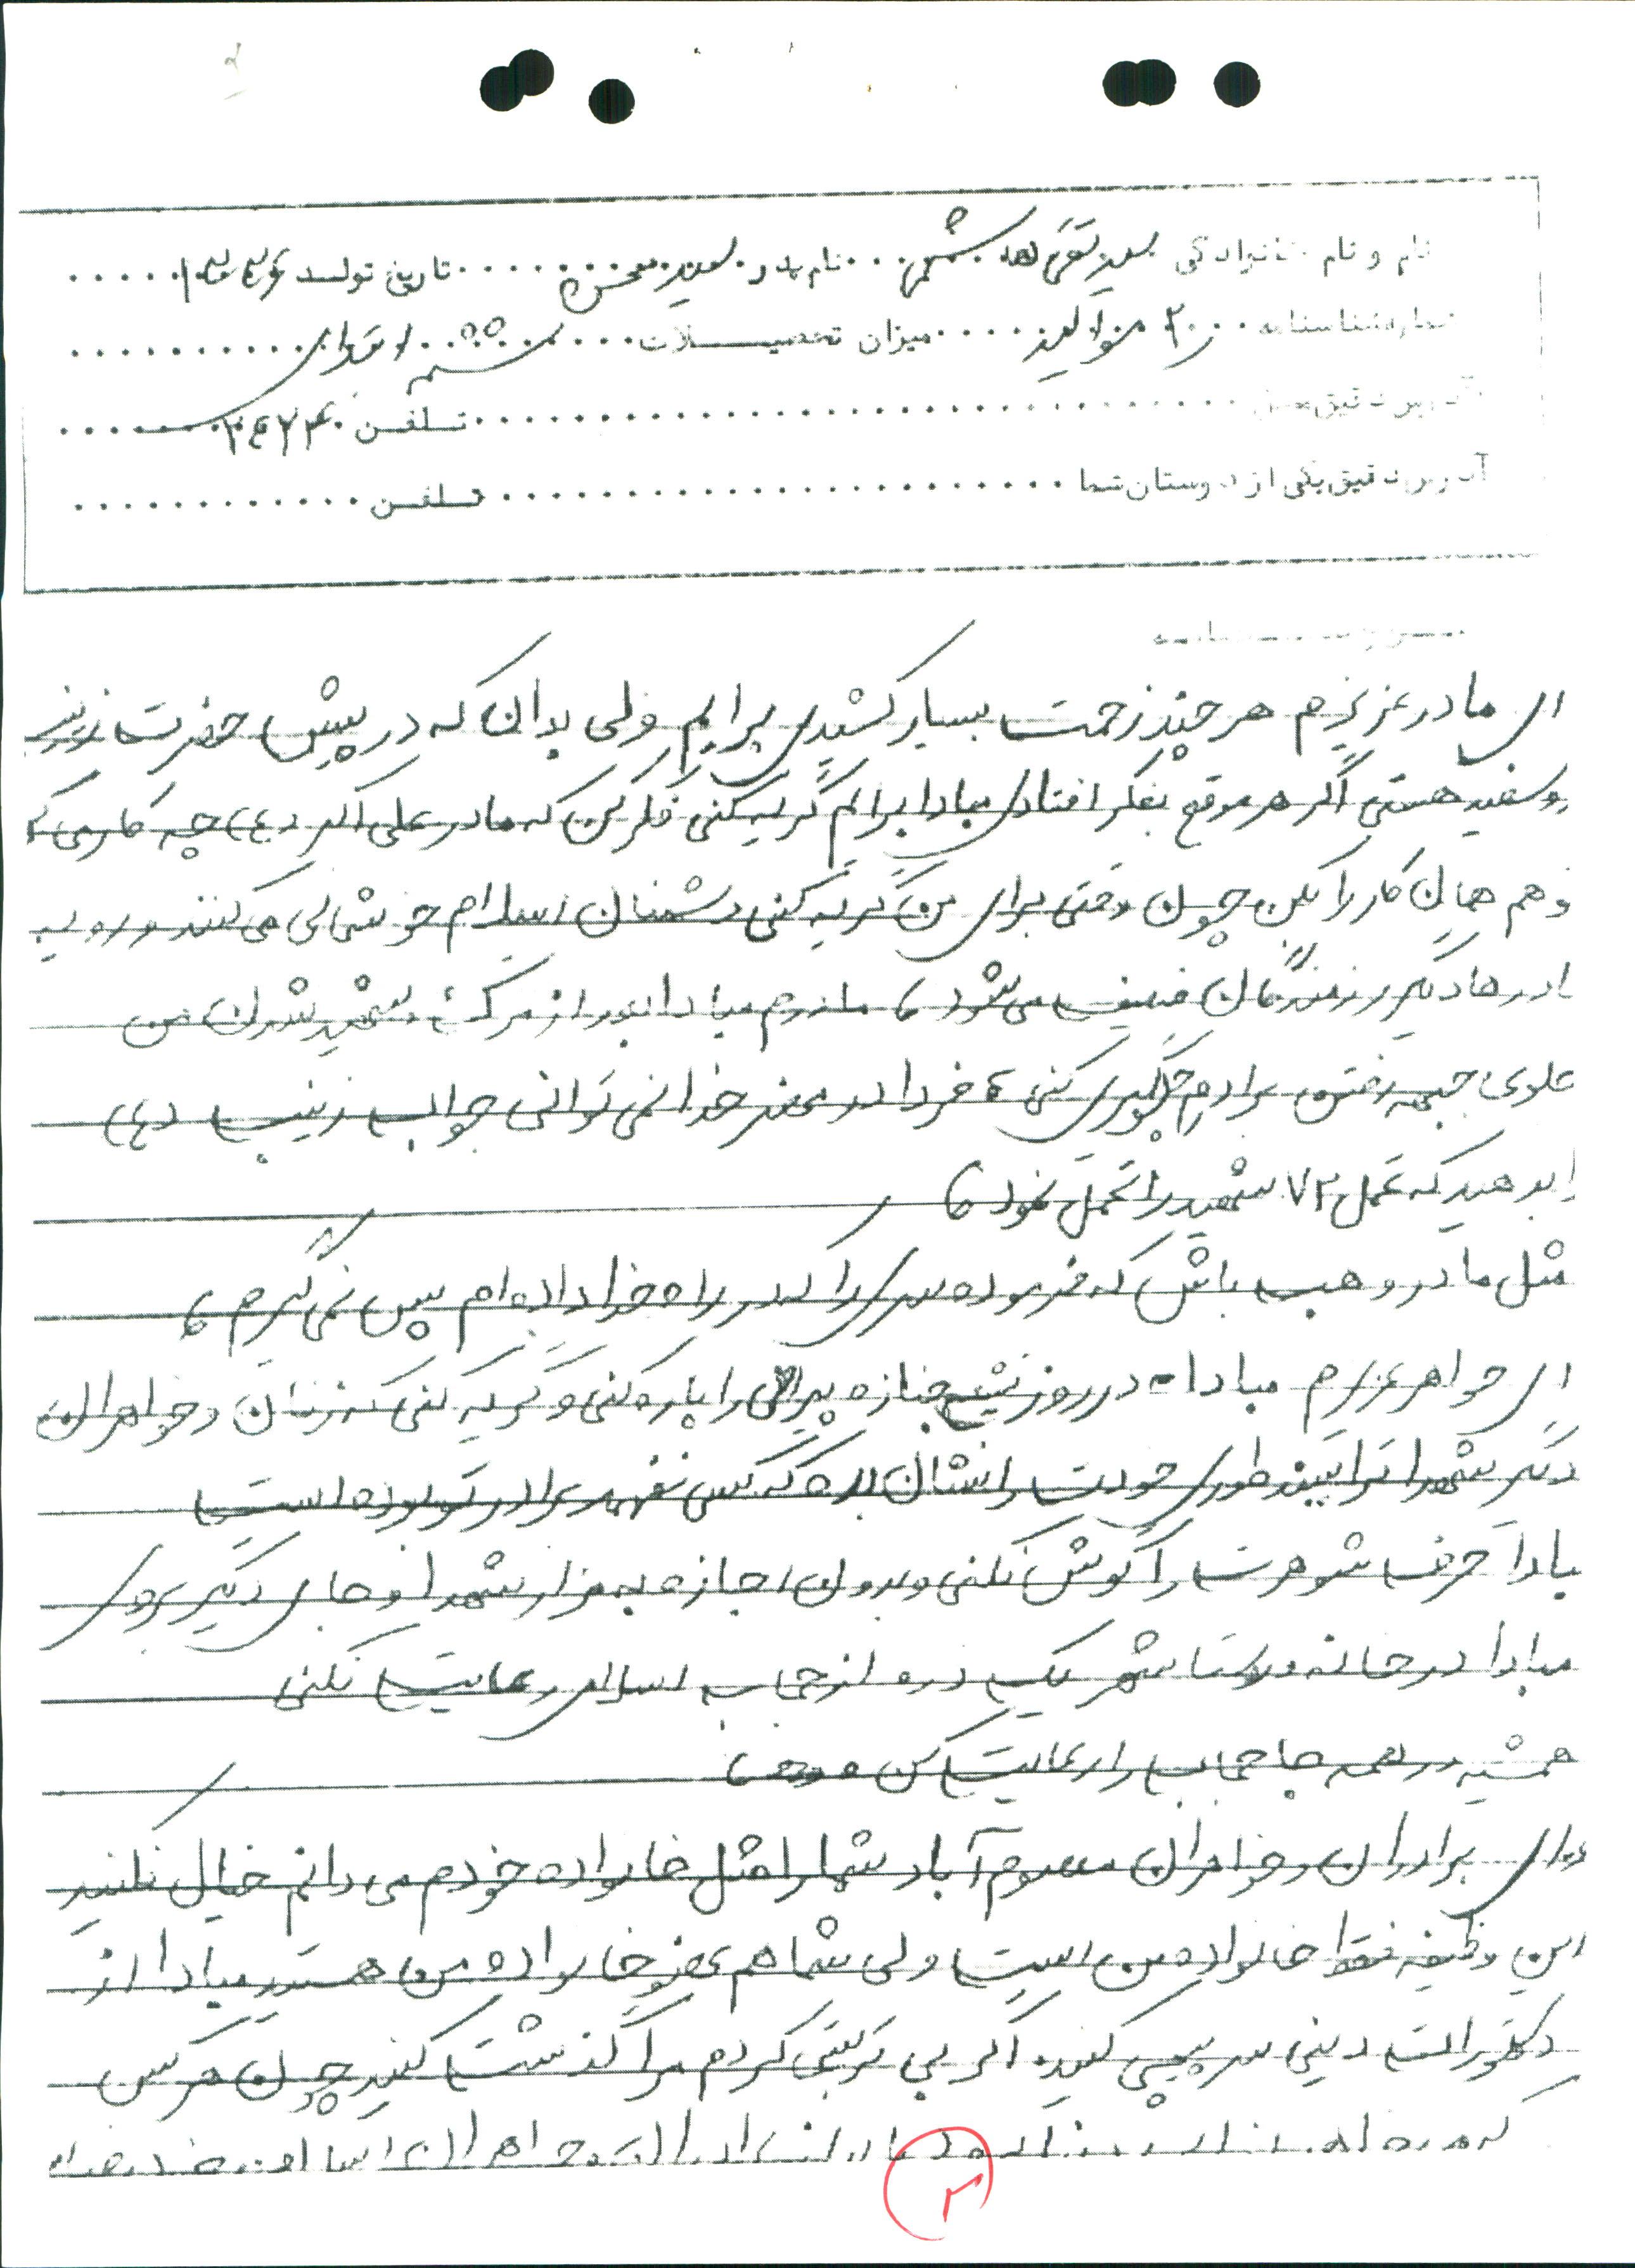 نام و نام خانوادگی سید تقی هاشمی نام پدر سید محسن تاریخ تولد ۱۳۴۶
شماره شناسنامه ۲۰ میزان تحصیلات ششم ابتدائی
آدرس دقیق تلفن
آدرس دقیق یکی از دوستان شما تلفن
ای مادر عزیزم هر چند زحمت بسیار کشیدی برایم ولی بدان که در پیش حضرت زینب
رو سفید هستی اگر هر موقع بفکر افتادی مبادا برایم گریه کنی فکر کن که مادر علی اکبر (ع) چه کار می
هم همان کار را بکن چون وقتی برای من گریه کنی دشمنان اسلام خوشحالی می کنند و روحیه
مادرها دیگر رزمندگان ضعیف می شود مادرم مبادا بعد از مرگ شهید شدن من
جلوی جبهه رفتن برادرم جلوگیری کنی فردا در محضر خدا نمی توانی جواب زینب
بدهید که تحمل ۷۲ شهید را تحمل نمود
مثل مادر وهب باش که فرموده سری را که در راه خدا داده ام پس نمی گیرم
ای خواهر عزیزم مبادا در روز تشیع جنازه پیراهن را پاره کنی و گریه کنی که زنان و خواهران
دیگر شهدا ترا ببیند طوری خودت را نشان بده که کسی نفهمد برادر تو بوده است
مبادا حرف شوهرت را گوش نکنی و بدون اجازه به مزار شهدا و جای دیگر بروی
مبادا در خانه و تا شهر یک ذره از حجاب اسلامی رعایت نکنی
همشیه در همه جا حجاب را رعایت کن
ای برادران و خواهران معصوم آباد شما را مثل خانواده خودم می دانم خیال نکنید
این وظیفه فقط خانواده من است ولی شما هم عضو خانواده من هستید مبادا از
دستورات دینی سر پیچی کنید اگر بی تربیتی کردم مرا گذشت کنید چون هر کس
۲